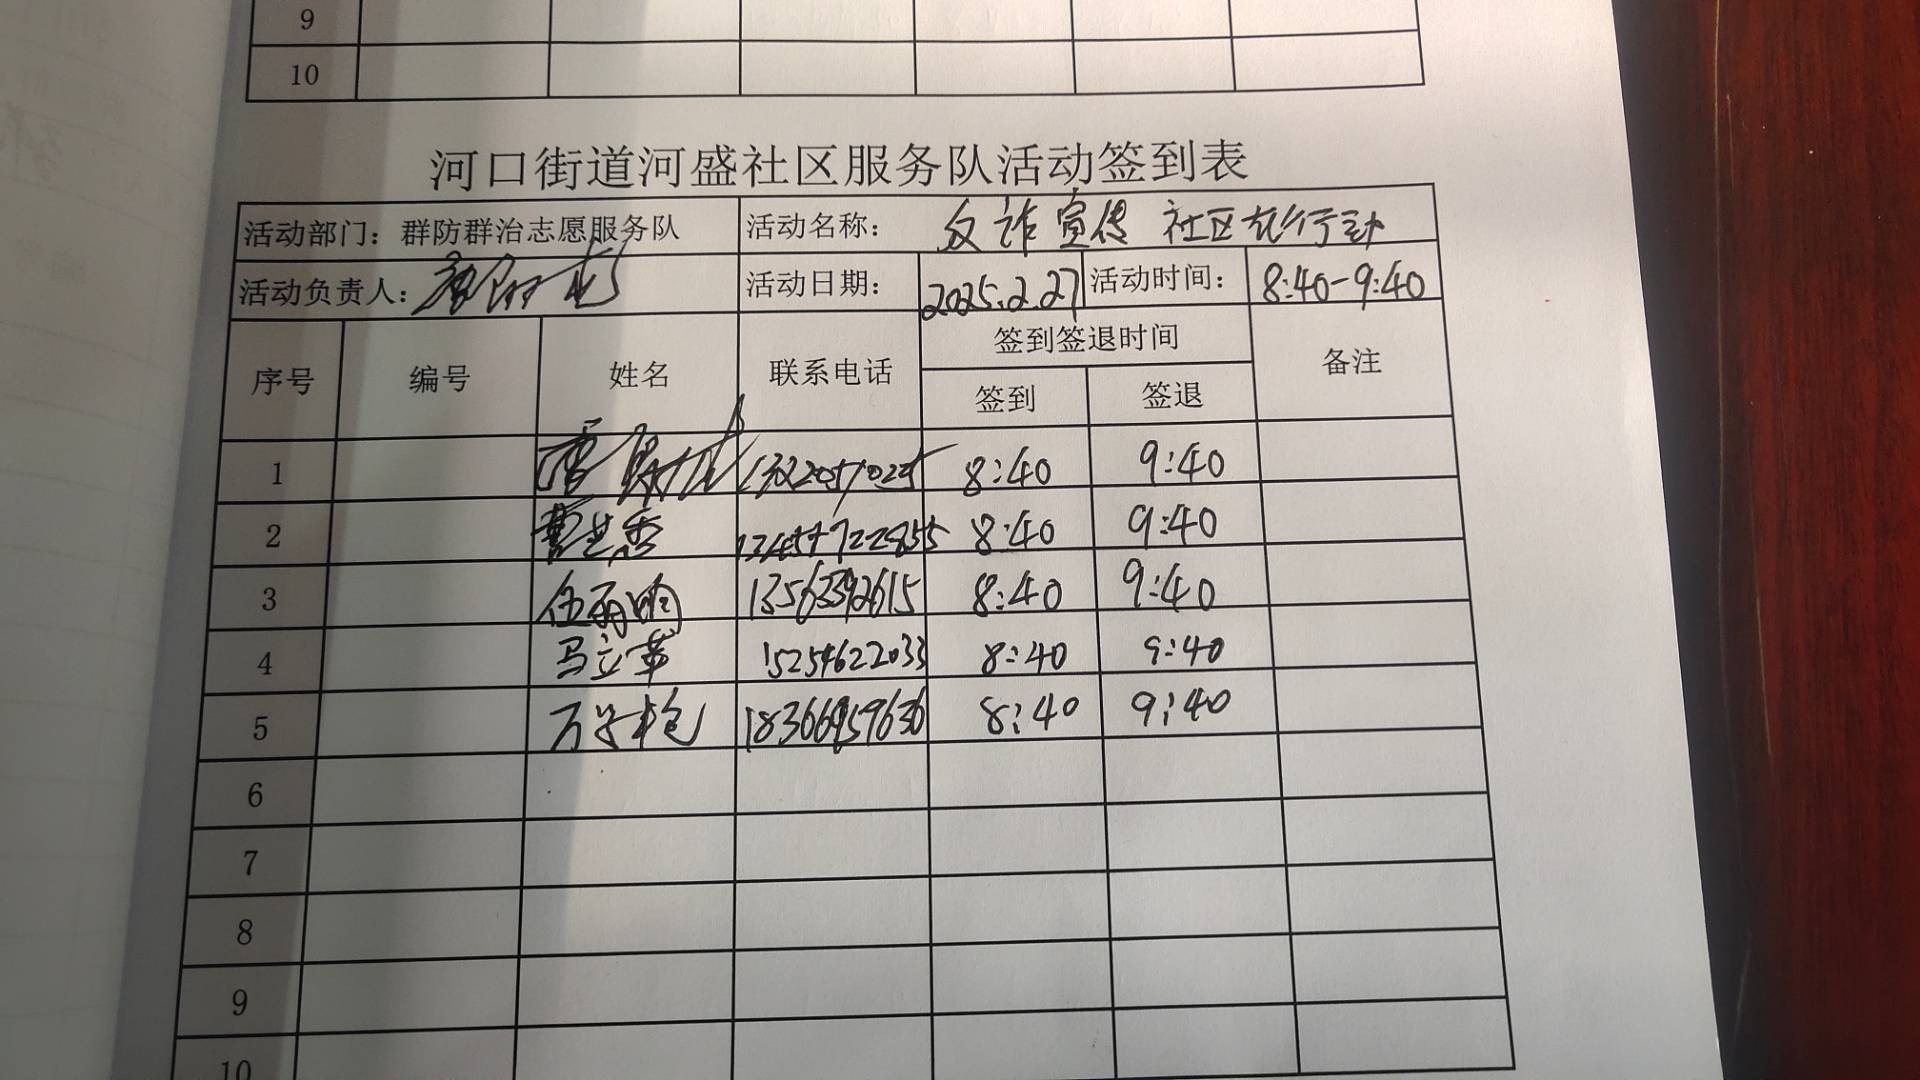 9
10
河口街道河盛社区服务队活动签到表
活动部门：群防群治志愿服务队 活动名称： 反诈宣传 社区在行动
活动负责人： 活动日期： 2025.2.27 活动时间： 8:40-9:40
序号 编号 姓名 联系电话 签到签退时间 备注
签到 签退
1 8:40 9:40
2 8:40 9:40
3 13563392615 8:40 9:40
4 马立革 15254622033 8:40 9:40
5 18366959636 8:40 9:40
6
7
8
9
10